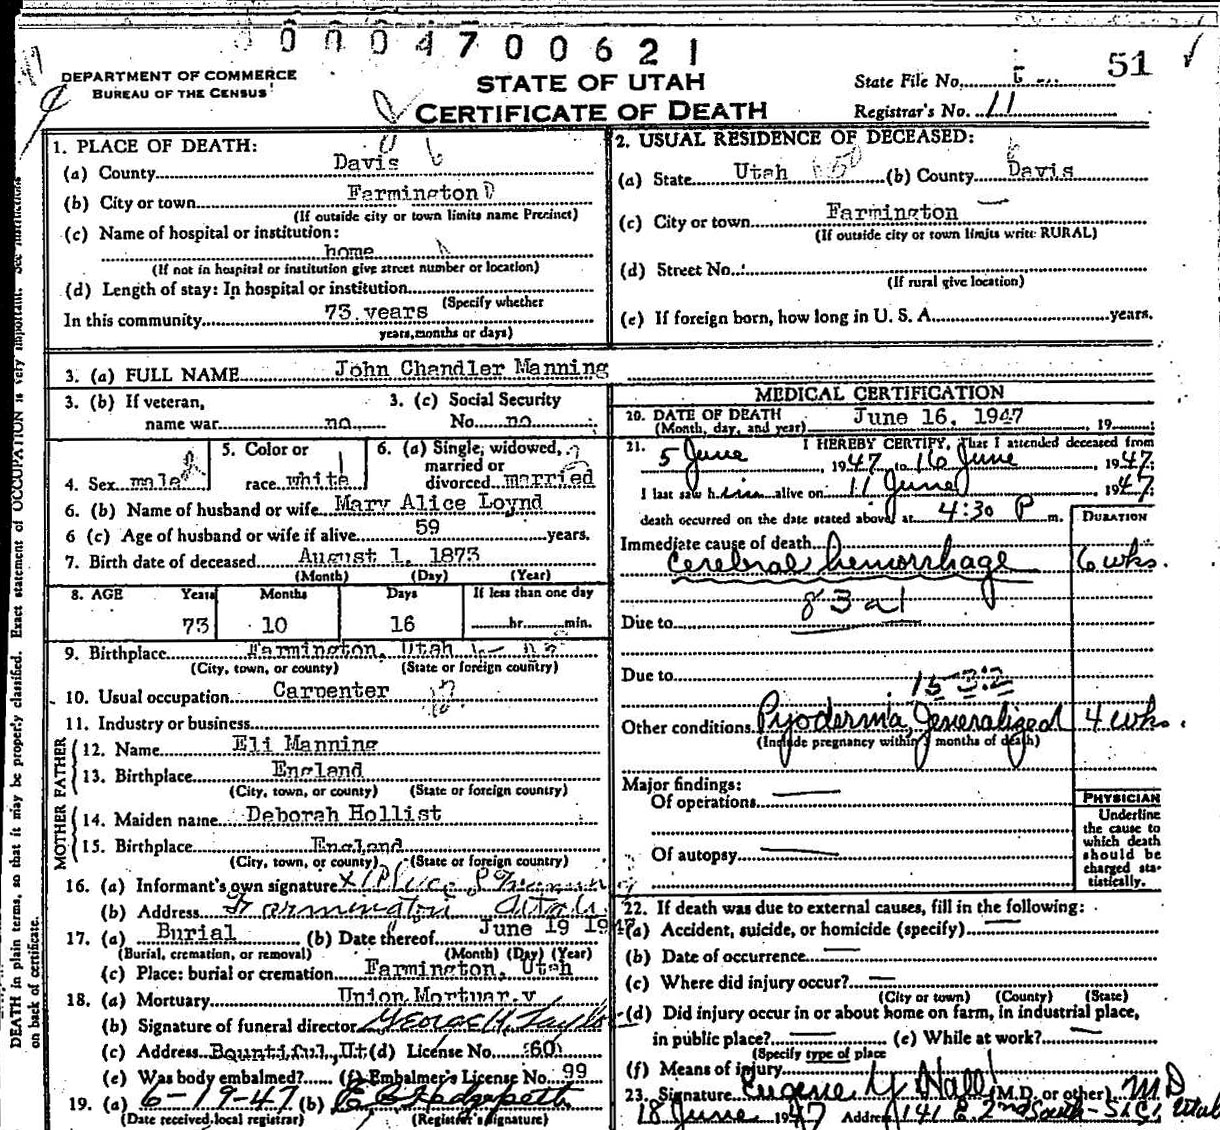 0004700621
DEPARTMENT OF COMMERCE
BUREAU OF THE CENSUS
STATE OF UTAH
CERTIFICATE OF DEATH
State File No. 51
Registrar's No. 11
1. PLACE OF DEATH:
(a) County Davis
(b) City or town Farmington
(If outside city or town limits name Precinct)
(c) Name of hospital or institution:
home
(If not in hospital or institution give street number or location)
(d) Length of stay: In hospital or institution
(Specify whether
In this community 73 years
years, months or days)
2. USUAL RESIDENCE OF DECEASED:
(a) State Utah (b) County Davis
(c) City or town Farmington
(If outside city or town limits write RURAL)
(d) Street No.
(If rural give location)
(e) If foreign born, how long in U. S. A. years.
3. (a) FULL NAME John Chandler Manning
3. (b) If veteran, 3. (c) Social Security
name war no No. no
4. Sex male 5. Color or race white 6. (a) Single, widowed, married or divorced married
6. (b) Name of husband or wife Mary Alice Loynd
6 (c) Age of husband or wife if alive 59 years.
7. Birth date of deceased August 1, 1873
(Month) (Day) (Year)
8. AGE Years Months Days If less than one day
73 10 16 hr. min.
9. Birthplace Farmington, Utah
(City, town, or county) (State or foreign country)
10. Usual occupation Carpenter
11. Industry or business
FATHER
12. Name Eli Manning
13. Birthplace England
(City, town, or county) (State or foreign country)
MOTHER
14. Maiden name Deborah Hollist
15. Birthplace England
(City, town, or county) (State or foreign country)
16. (a) Informant's own signature
(b) Address Farmington Utah
17. (a) Burial (b) Date thereof June 19 1947
(Burial, cremation, or removal) (Month) (Day) (Year)
(c) Place: burial or cremation Farmington, Utah
18. (a) Mortuary Union Mortuary
(b) Signature of funeral director George H. Taylor
(c) Address Bountiful, Ut (d) License No. 60
(e) Was body embalmed? (f) Embalmer's License No. 99
19. (a) 6-19-47 (b) E C Hodgepeth
(Date received local registrar) (Registrar's signature)
MEDICAL CERTIFICATION
20. DATE OF DEATH June 16, 1947 19
(Month, day, and year)
21. I HEREBY CERTIFY, That I attended deceased from
5 June, 1947 to 16 June 1947;
I last saw him alive on 11 June 1947;
death occurred on the date stated above at 4:30 P m.
DURATION
Immediate cause of death
Cerebral hemorrhage 6 wks.
83a1
Due to
Due to
153.2
Other conditions Pyodermia, Generalized 4 wks.
(Include pregnancy within 3 months of death)
Major findings:
Of operations
Of autopsy
PHYSICIAN
Underline
the cause to
which death
should be
charged sta-
tistically.
22. If death was due to external causes, fill in the following:
(a) Accident, suicide, or homicide (specify)
(b) Date of occurrence
(c) Where did injury occur?
(City or town) (County) (State)
(d) Did injury occur in or about home on farm, in industrial place,
in public place? (e) While at work?
(Specify type of place
(f) Means of injury
23. Signature Eugene Y Hall (M.D. or other) M D
18 June 1947 Address 141 E 2nd South - S.L.C. Utah
DEATH in plain terms, so that it may be properly classified. Exact statement of OCCUPATION is very important. See instructions
on back of certificate.